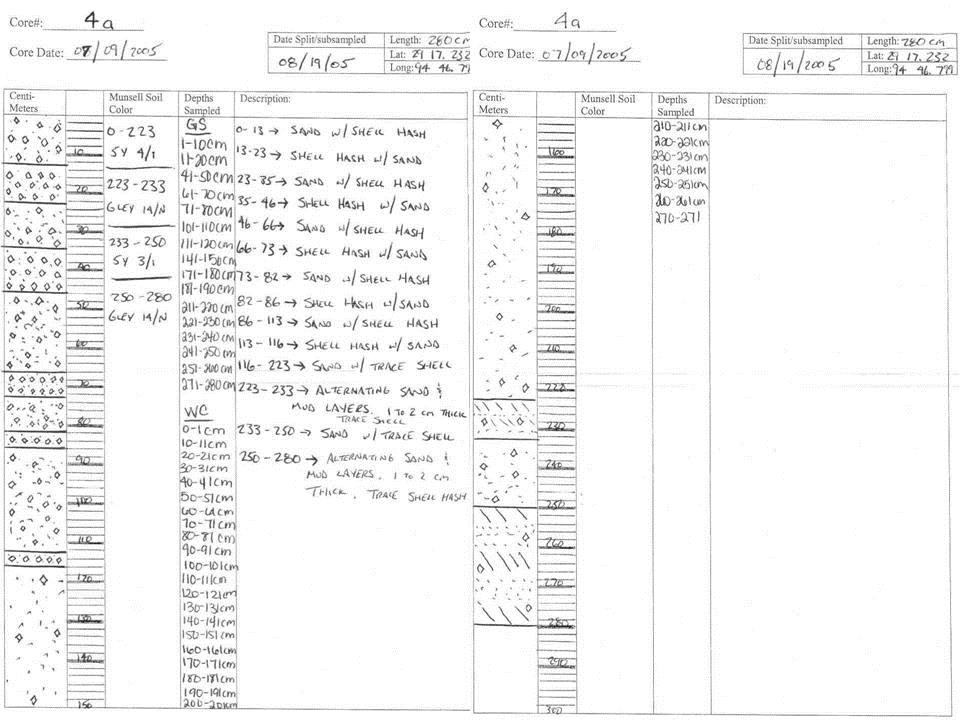 Core#: 4a
Core Date: 07/09/2005
Date Split/subsampled
08/19/05
Length: 280 cm
Lat: 29 17. 232
Long: 94 46. 799
Centi-Meters
Munsell Soil Color
Depths Sampled
Description:
10
20
30
40
50
60
70
80
90
100
110
120
130
140
150
0-223
5Y 4/1
223-233
GLEY 1A/N
233-250
5Y 3/1
250-280
GLEY 1A/N
GS
1-10cm
11-20cm
41-50cm
61-70cm
71-80cm
101-110cm
111-120cm
141-150cm
171-180cm
181-190cm
211-220cm
221-230cm
231-240cm
241-250cm
251-260cm
271-280cm
WC
0-1cm
10-11cm
20-21cm
30-31cm
40-41cm
50-51cm
60-61cm
70-71cm
80-81cm
90-91cm
100-101cm
110-111cm
120-121cm
130-131cm
140-141cm
150-151cm
160-161cm
170-171cm
180-181cm
190-191cm
200-201cm
0-13 → SAND W/ SHELL HASH
13-23 → SHELL HASH W/ SAND
23-35 → SAND W/ SHELL HASH
35-46 → SHELL HASH W/ SAND
46-66 → SAND W/ SHELL HASH
66-73 → SHELL HASH W/ SAND
73-82 → SAND W/ SHELL HASH
82-86 → SHELL HASH W/ SAND
86-113 → SAND W/ SHELL HASH
113-116 → SHELL HASH W/ SAND
116-223 → SAND W/ TRACE SHELL
223-233 → ALTERNATING SAND &
MUD LAYERS. 1 TO 2 cm THICK
TRACE SHELL
233-250 → SAND W/ TRACE SHELL
250-280 → ALTERNATING SAND &
MUD LAYERS. 1 TO 2 cm
THICK. TRACE SHELL HASH
Core#: 4a
Core Date: 07/09/2005
Date Split/subsampled
08/19/2005
Length: 280 cm
Lat: 29 17. 232
Long: 94 46. 799
Centi-Meters
Munsell Soil Color
Depths Sampled
Description:
160
170
180
190
200
210
220
230
240
250
260
270
280
290
300
210-211cm
220-221cm
230-231cm
240-241cm
250-251cm
260-261cm
270-271